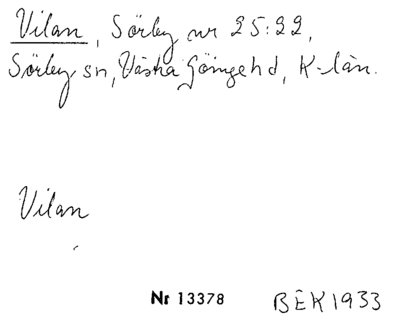 Vilan, Sörby nr 25:22,
Sörby sn, Västra Göinge hd, K-län.
Vilan
Nr 13378 BEK 1933